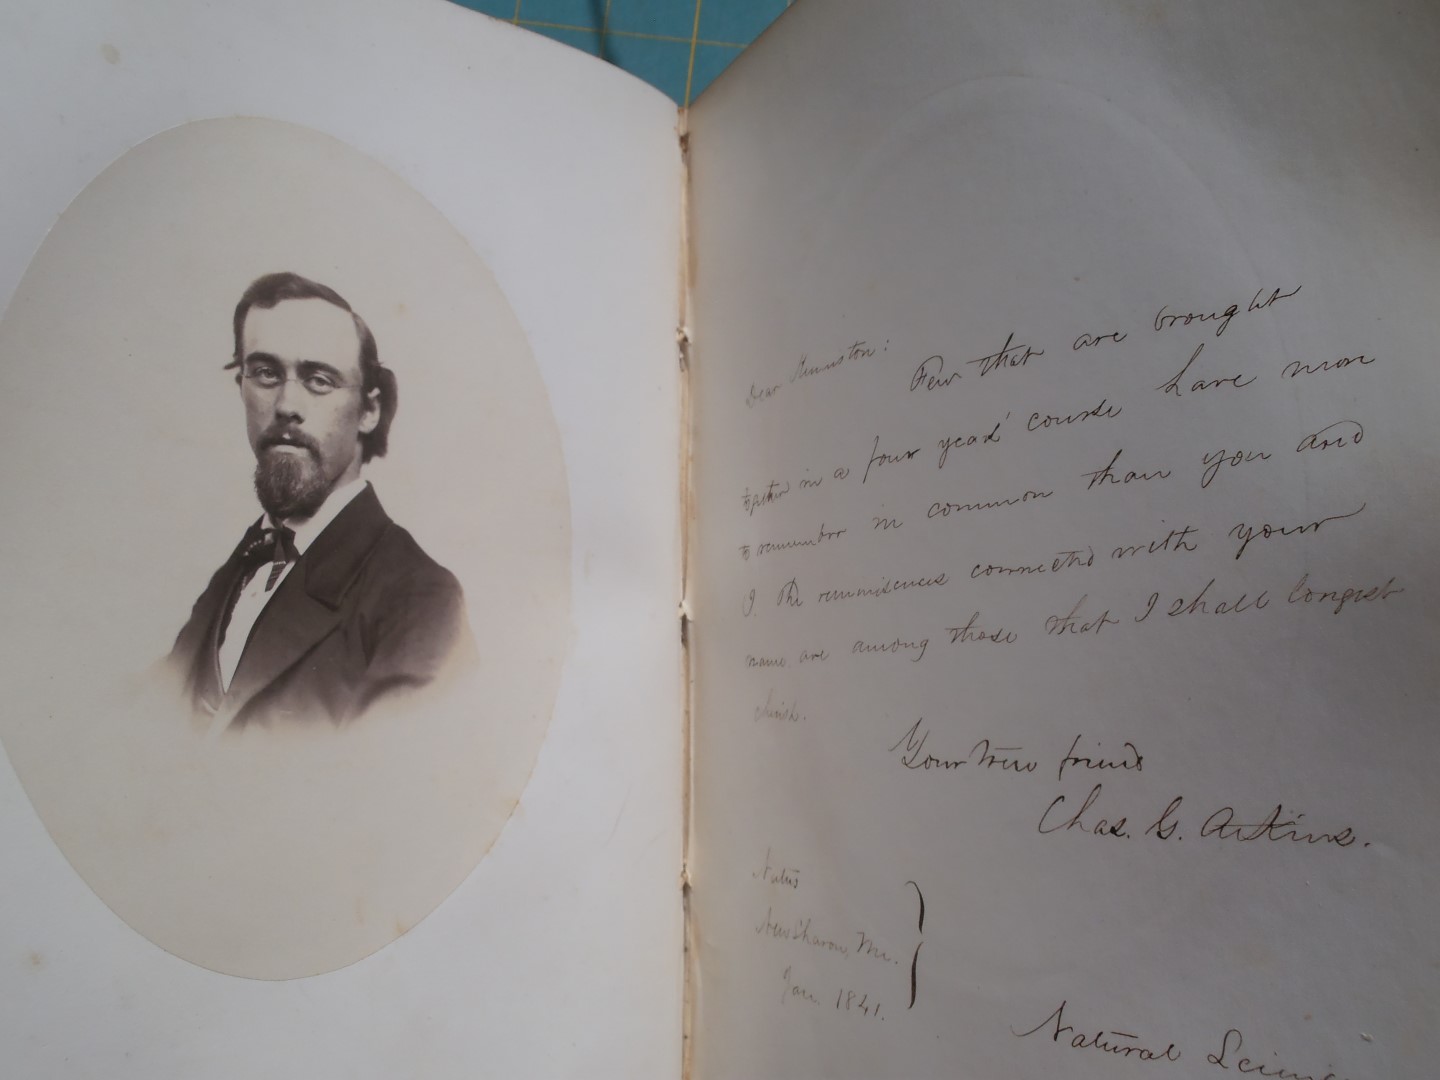 Dear
Few that are brought
together in a four years' course have more
to remember in common than you and
I. The reminiscences connected with your
name are among those that I shall longest
cherish.
Your true friend
Chas. G. Atkins.
Natus
New Sharon, Me.
Jan. 1841.
Natural